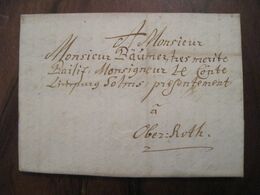 A Monsieur
Monsieur Bäumer tres merité
Bailif, Monsigneur le Conte
Limpurg Solms, presentement
à
Ober-Roth.